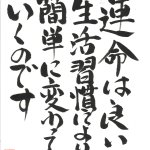 運命は良い
生活習慣により
簡単に変わって
いくのです